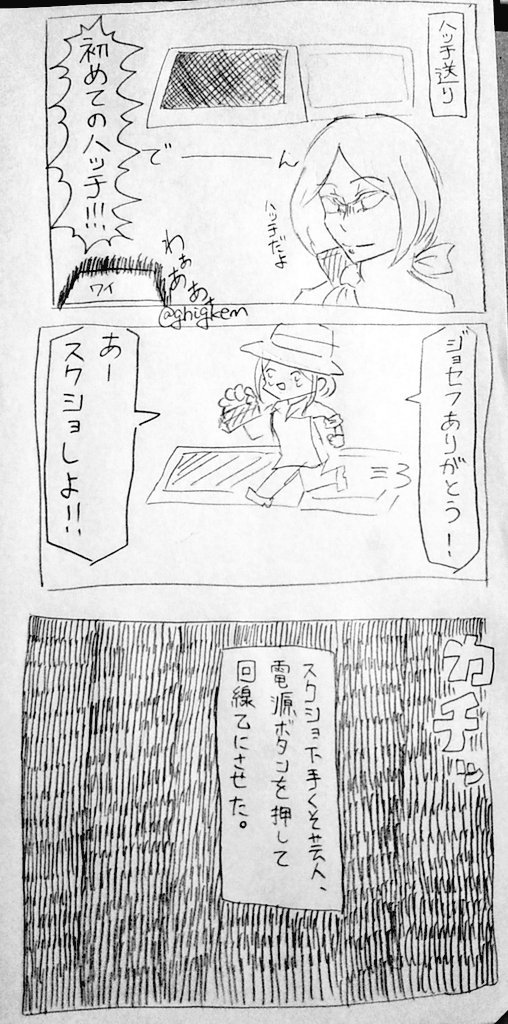 ハッチ送り
で―――ん
ハッチだよ
初めてのハッチ!!!
わぁあぁ
ワイ
@ghigkem
ジョセフありがとう!
ミ3
あー
スクショしよ!!
カチッ
スクショ下手くそ芸人、
電源ボタンを押して
回線乙にさせた。